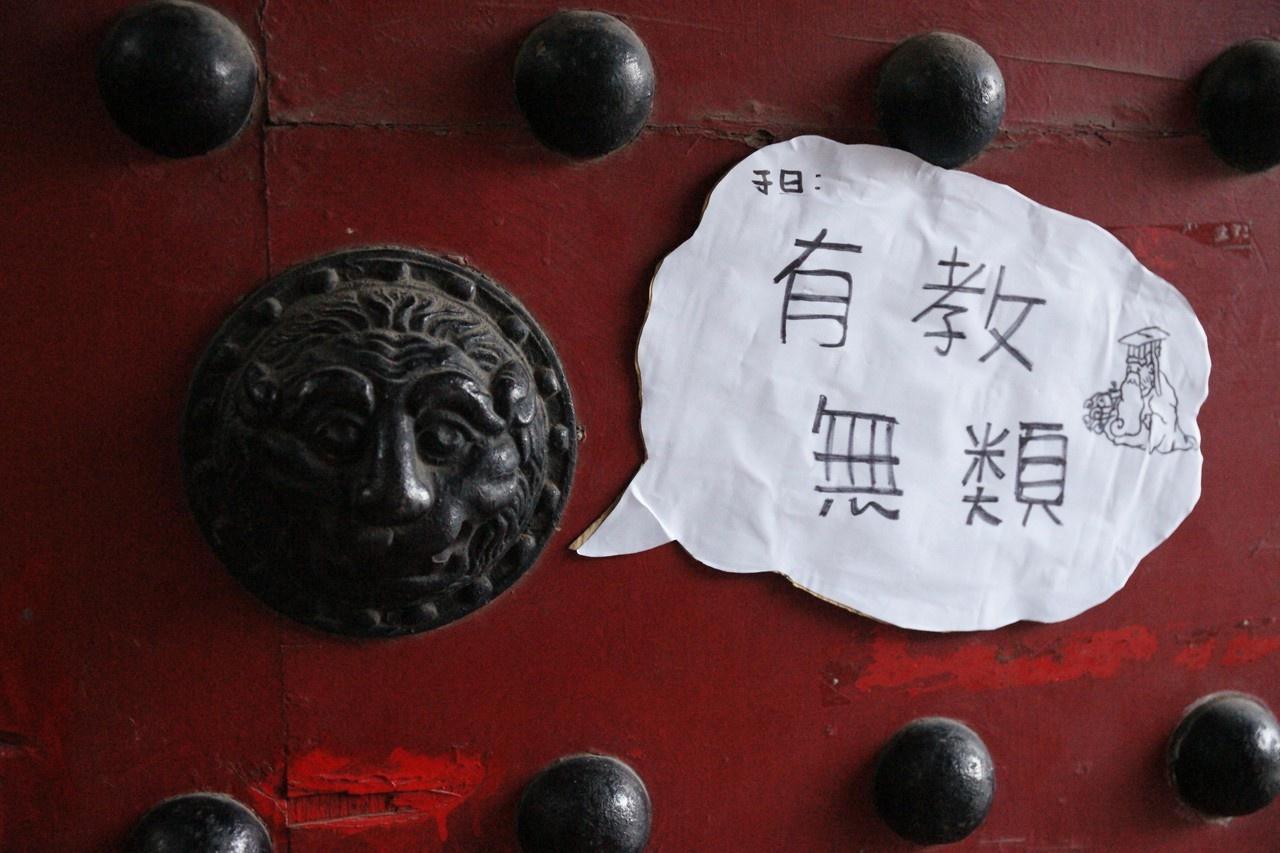 子曰:
有教
無類